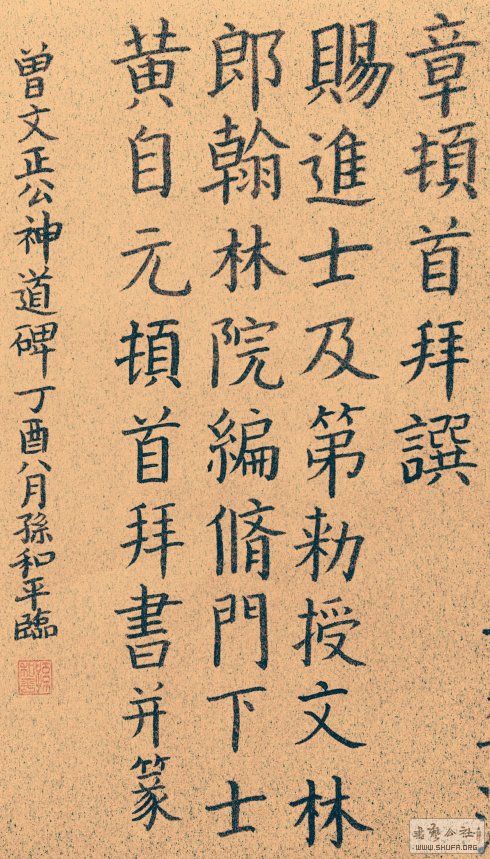 章頓首拜譔
賜進士及第勅授文林
郎翰林院編脩門下士
黃自元頓首拜書并篆
曾文正公神道碑丁酉八月孫和平臨
WWW.SHUFA.ORG